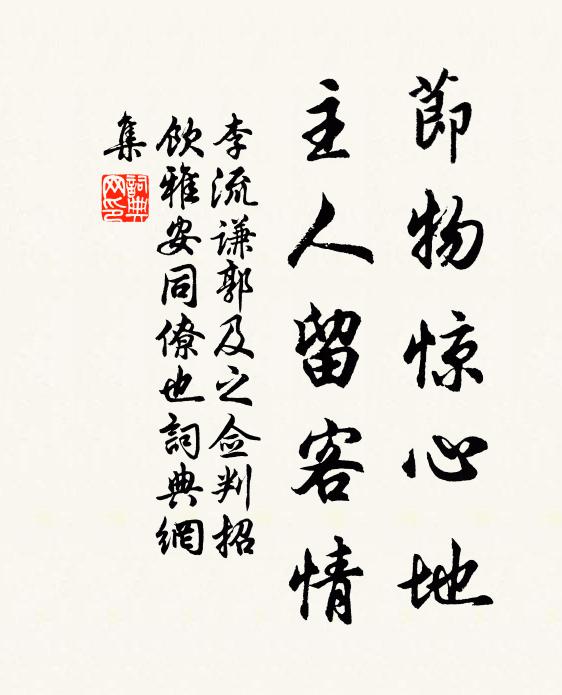 節物惊心地
主人留客情
李流谦郭及之佥判招
饮雅安同僚也詞典網
集
詞典
网印